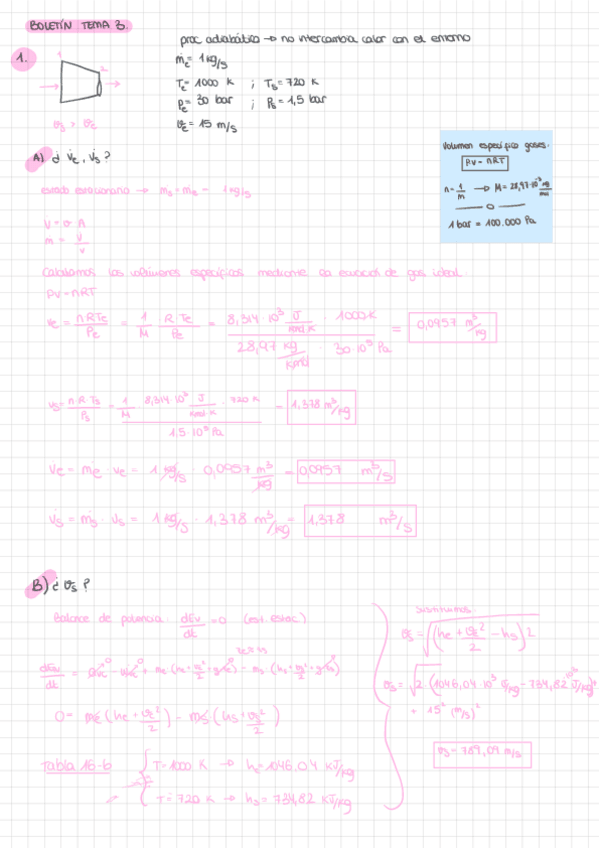 BOLETÍN TEMA 3.
1.
proc adiabático → no intercambia calor con el entorno
ṁe = 1 kg/s
Te = 1000 K ; Ts = 720 K
Pe = 30 bar ; Ps = 1,5 bar
ʋe = 15 m/s
1
2
ʋs > ʋe
Volumen específico gases.
PV = nRT
n = 1/M → M = 28,97·10⁻³ kg/mol
1 bar = 100.000 Pa
A) ¿ V̇e, V̇s ?
estado estacionario → ṁs = ṁe = 1 kg/s
V̇ = ʋ A
ṁ = V̇/v
Calculamos los volúmenes específicos mediante la ecuación de gas ideal.
PV = nRT
ve = nRTe/Pe = 1/M · R·Te/Pe = 8,314·10³ J/kmol·K · 1000 K / 28,97 kg/kmol · 30·10⁵ Pa = 0,0957 m³/kg
vs = n·R·Ts/Ps = 1/M · 8,314·10³ J/kmol·K · 720 K / 1,5·10⁵ Pa = 1,378 m³/kg
V̇e = ṁe · ve = 1 kg/s · 0,0957 m³/kg = 0,0957 m³/s
V̇s = ṁs · vs = 1 kg/s · 1,378 m³/kg = 1,378 m³/s
B) ¿ ʋs ?
Balance de potencia: dEv/dt = 0 (est. estac)
0 = ṁe (he + ʋe²/2) - ṁs (hs + ʋs²/2)
tabla 16-b
T = 1000 K → he = 1046,04 kJ/kg
T = 720 K → hs = 734,82 KJ/kg
Sustituimos:
ʋs = √(he + ʋe²/2 - hs) 2
ʋs = √2·(1046,04·10³ J/kg - 734,82·10³ J/kg) +
+ 15² (m/s)²
ʋs = 789,09 m/s